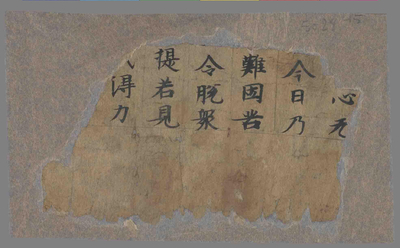 心无
今日乃
難困苦
令脫衆
提若見
得力